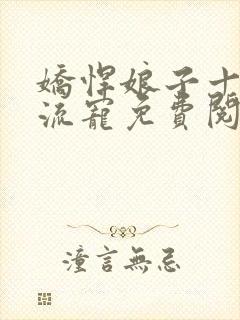 嬌悍娘子十
流寵免費閱
潼言無忌